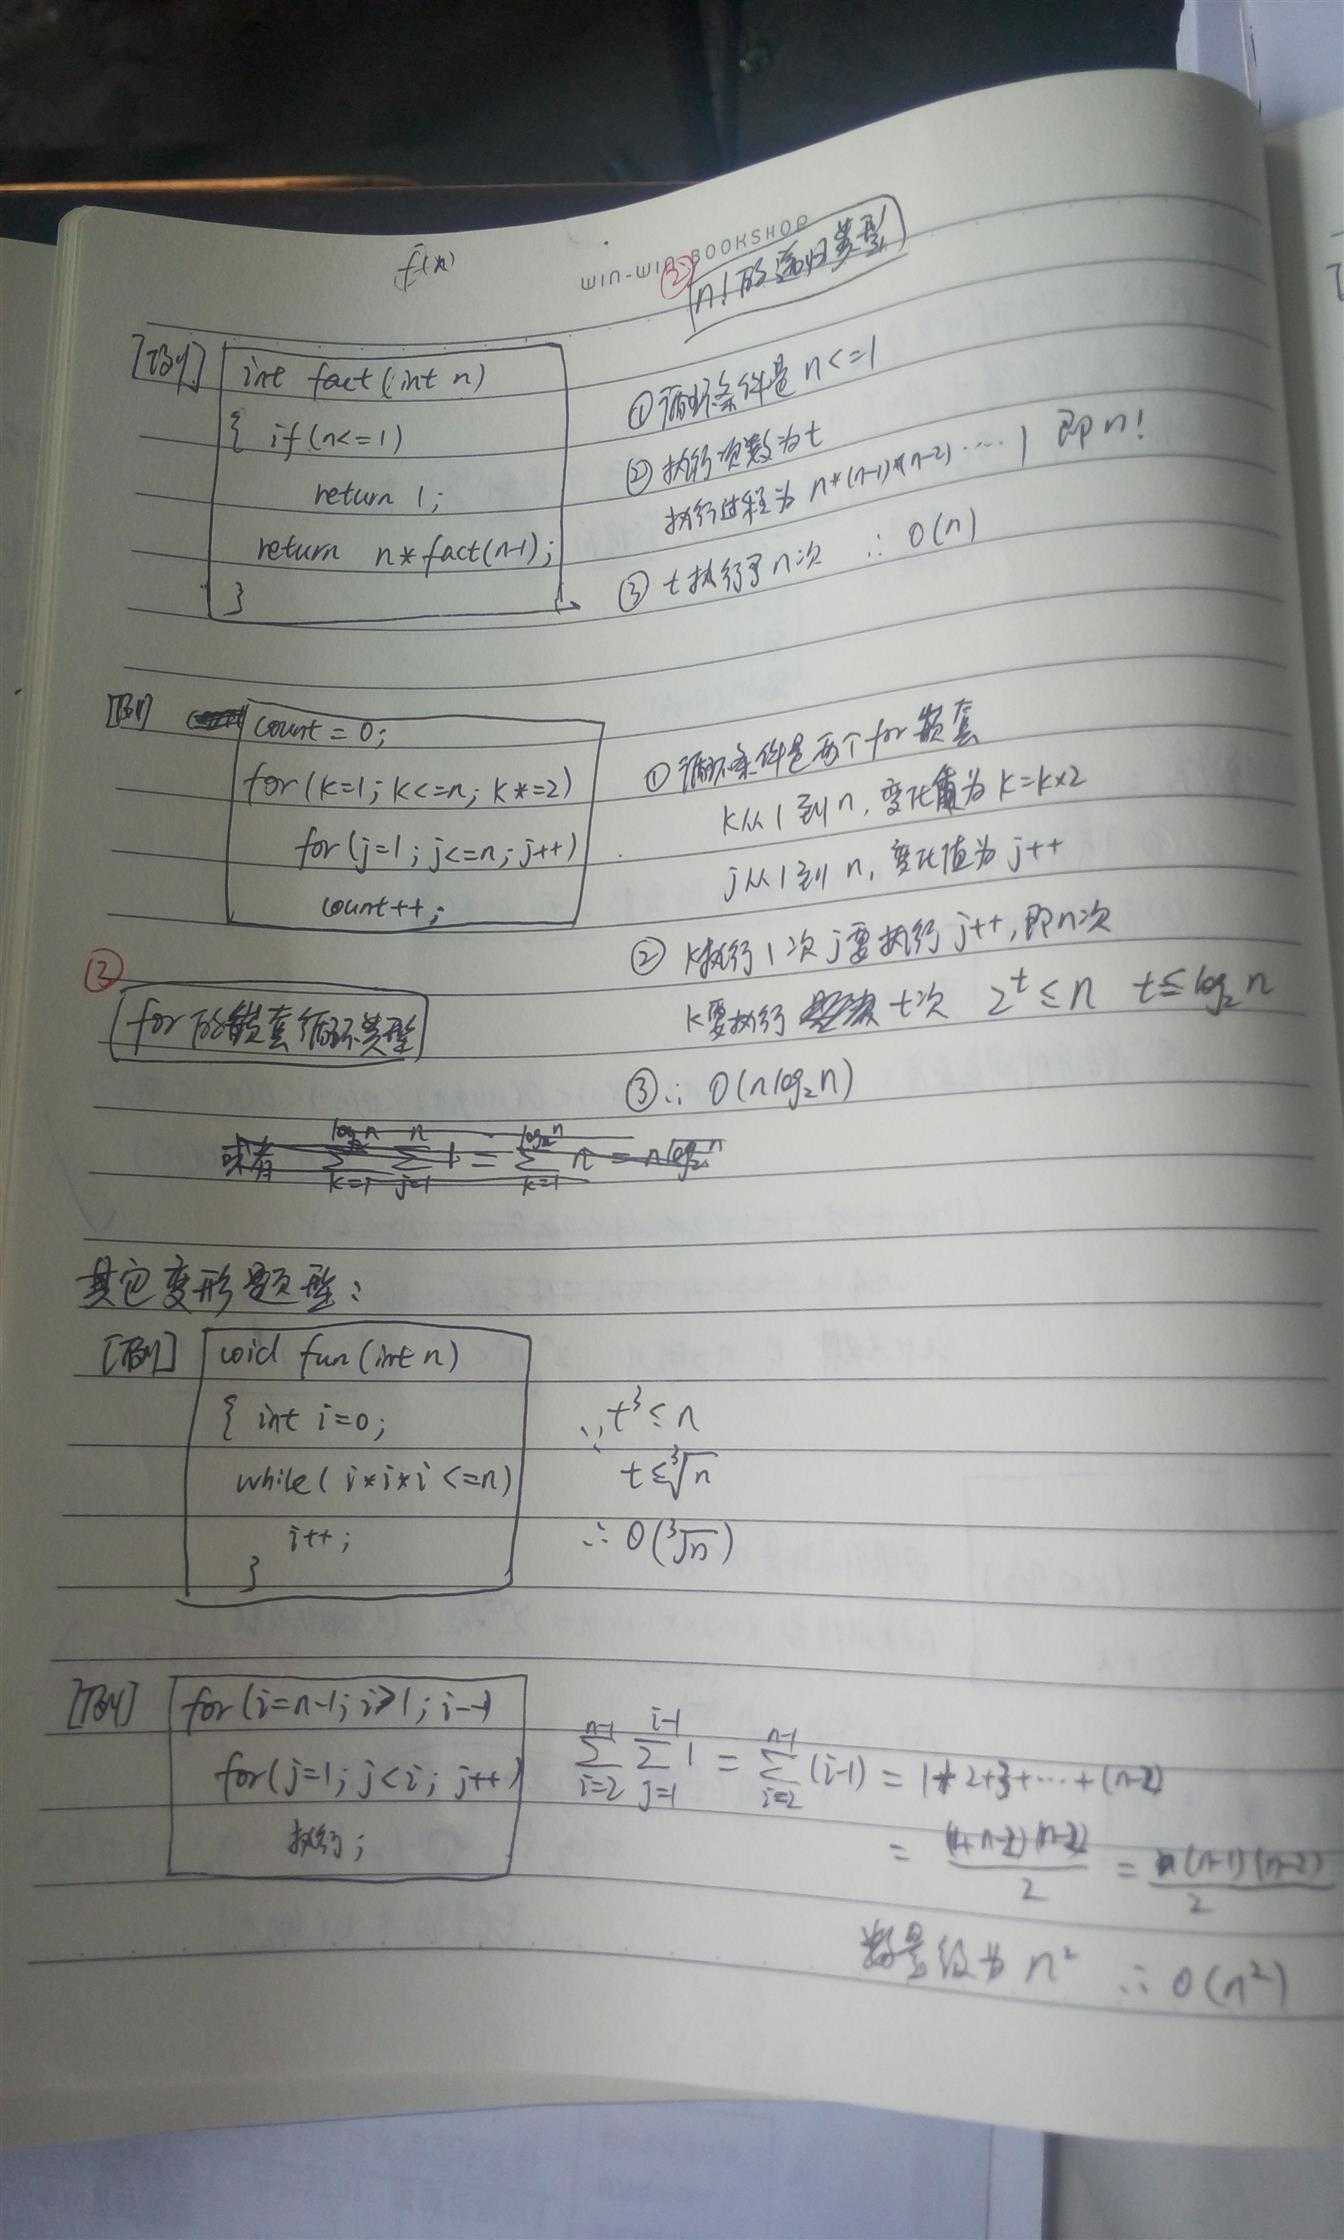 f(n)
WIN-WIN BOOKSHOP
② n!的递归类型
[例] int fact(int n)
{ if(n<=1)
return 1;
return n*fact(n-1);
}
① 循环条件是 n<=1
② 执行次数为t
执行过程为 n*(n-1)*(n-2)……1 即n!
③ t执行了n次 ∴ O(n)
[例] count=0;
for(k=1; k<=n; k*=2)
for(j=1; j<=n; j++)
count++;
① 循环条件是两个for嵌套
k从1到n, 变化值为k=k×2
j从1到n, 变化值为j++
② k执行1次j要执行j++,即n次
k要执行 t次 2^t≤n t≤log₂n
③∴ O(nlog₂n)
③
for的嵌套循环类型
或者 log₂n∑k=1 n∑j=1 1 = log₂n∑k=1 n = nlog₂n
其它变形题型:
[例] void fun(int n)
{ int i=0;
while(i*i*i<=n)
i++;
}
∵ t³≤n
t≤³√n
∴ O(³√n)
[例] for(i=n-1; i>1; i--)
for(j=1; j<i; j++)
执行;
n-1∑i=2 i-1∑j=1 1 = n-1∑i=2 (i-1) = 1+2+3+…+(n-2)
= (1+n-2)(n-2)/2 = (n-1)(n-2)/2
数量级为n² ∴ O(n²)